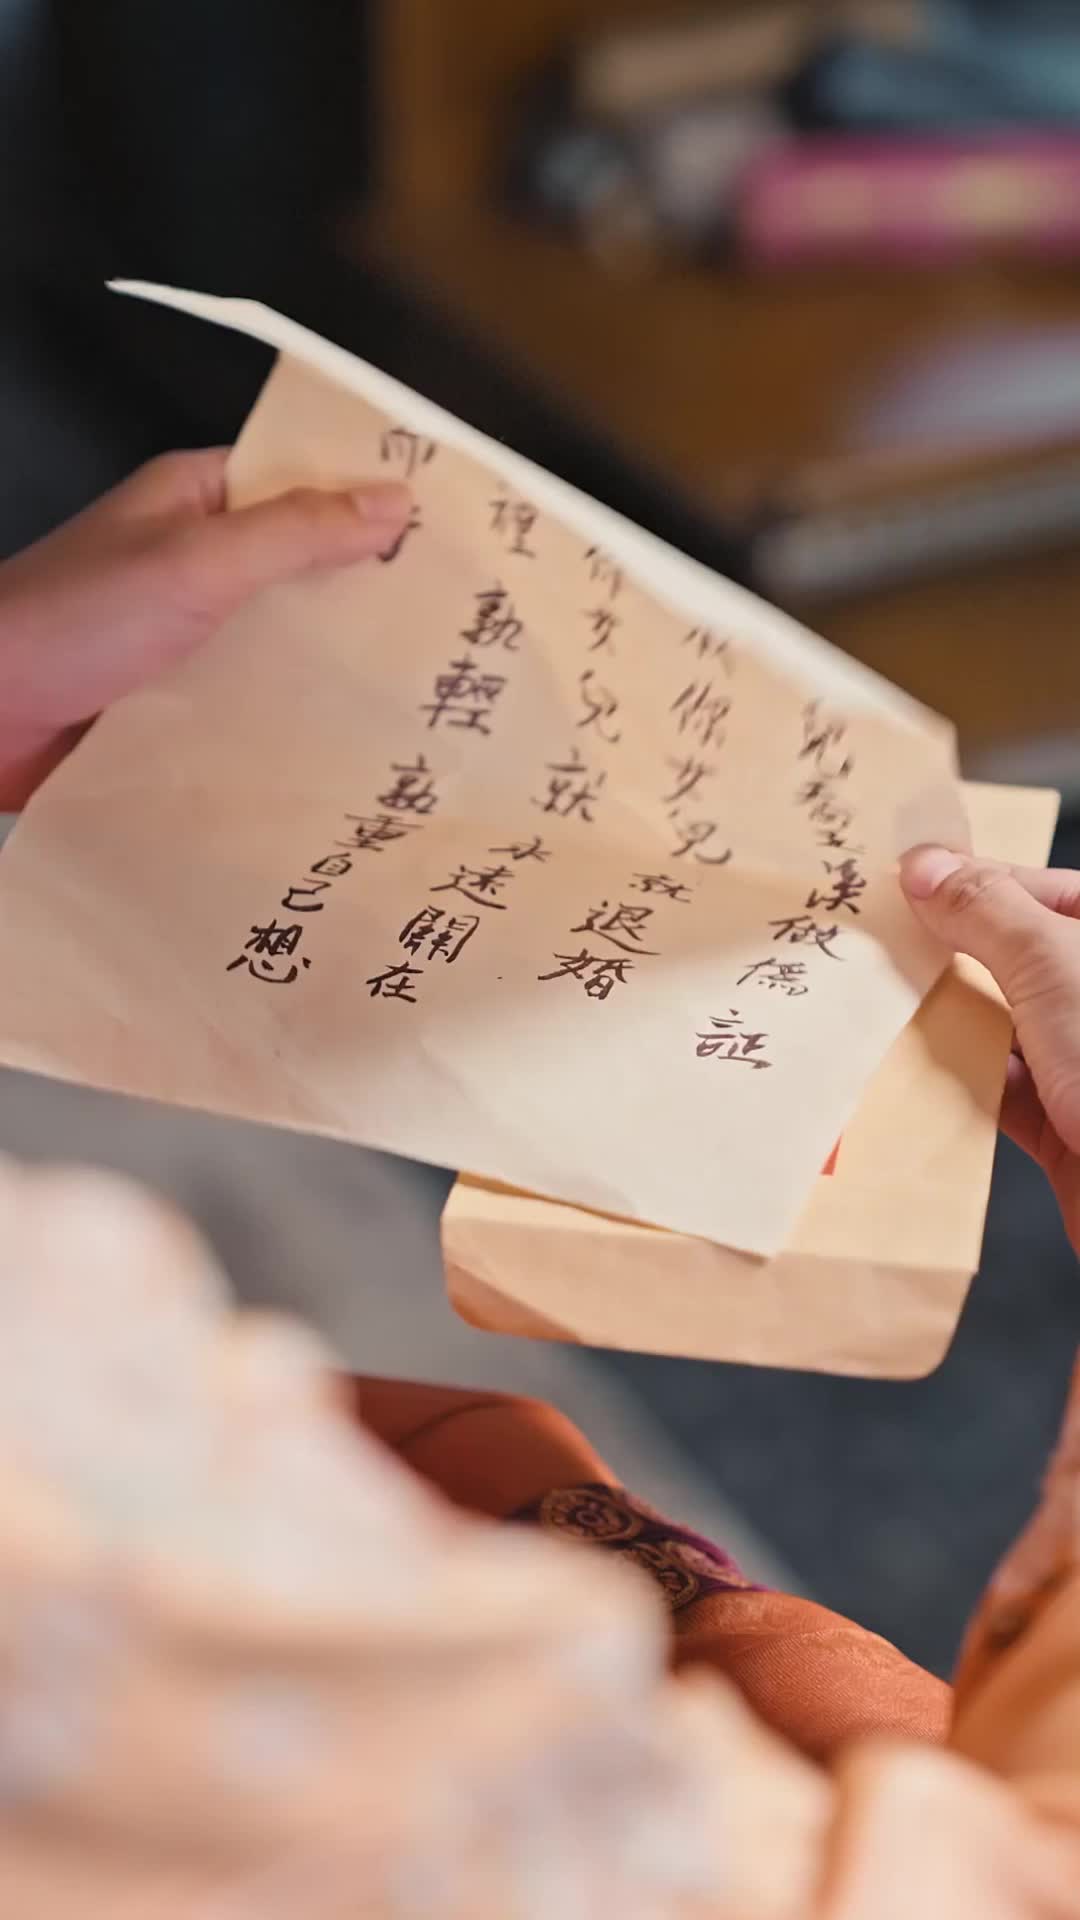 兒為梁溪做偽証
你女兒就退婚
你女兒就永遠關在
裡孰輕孰重自己想